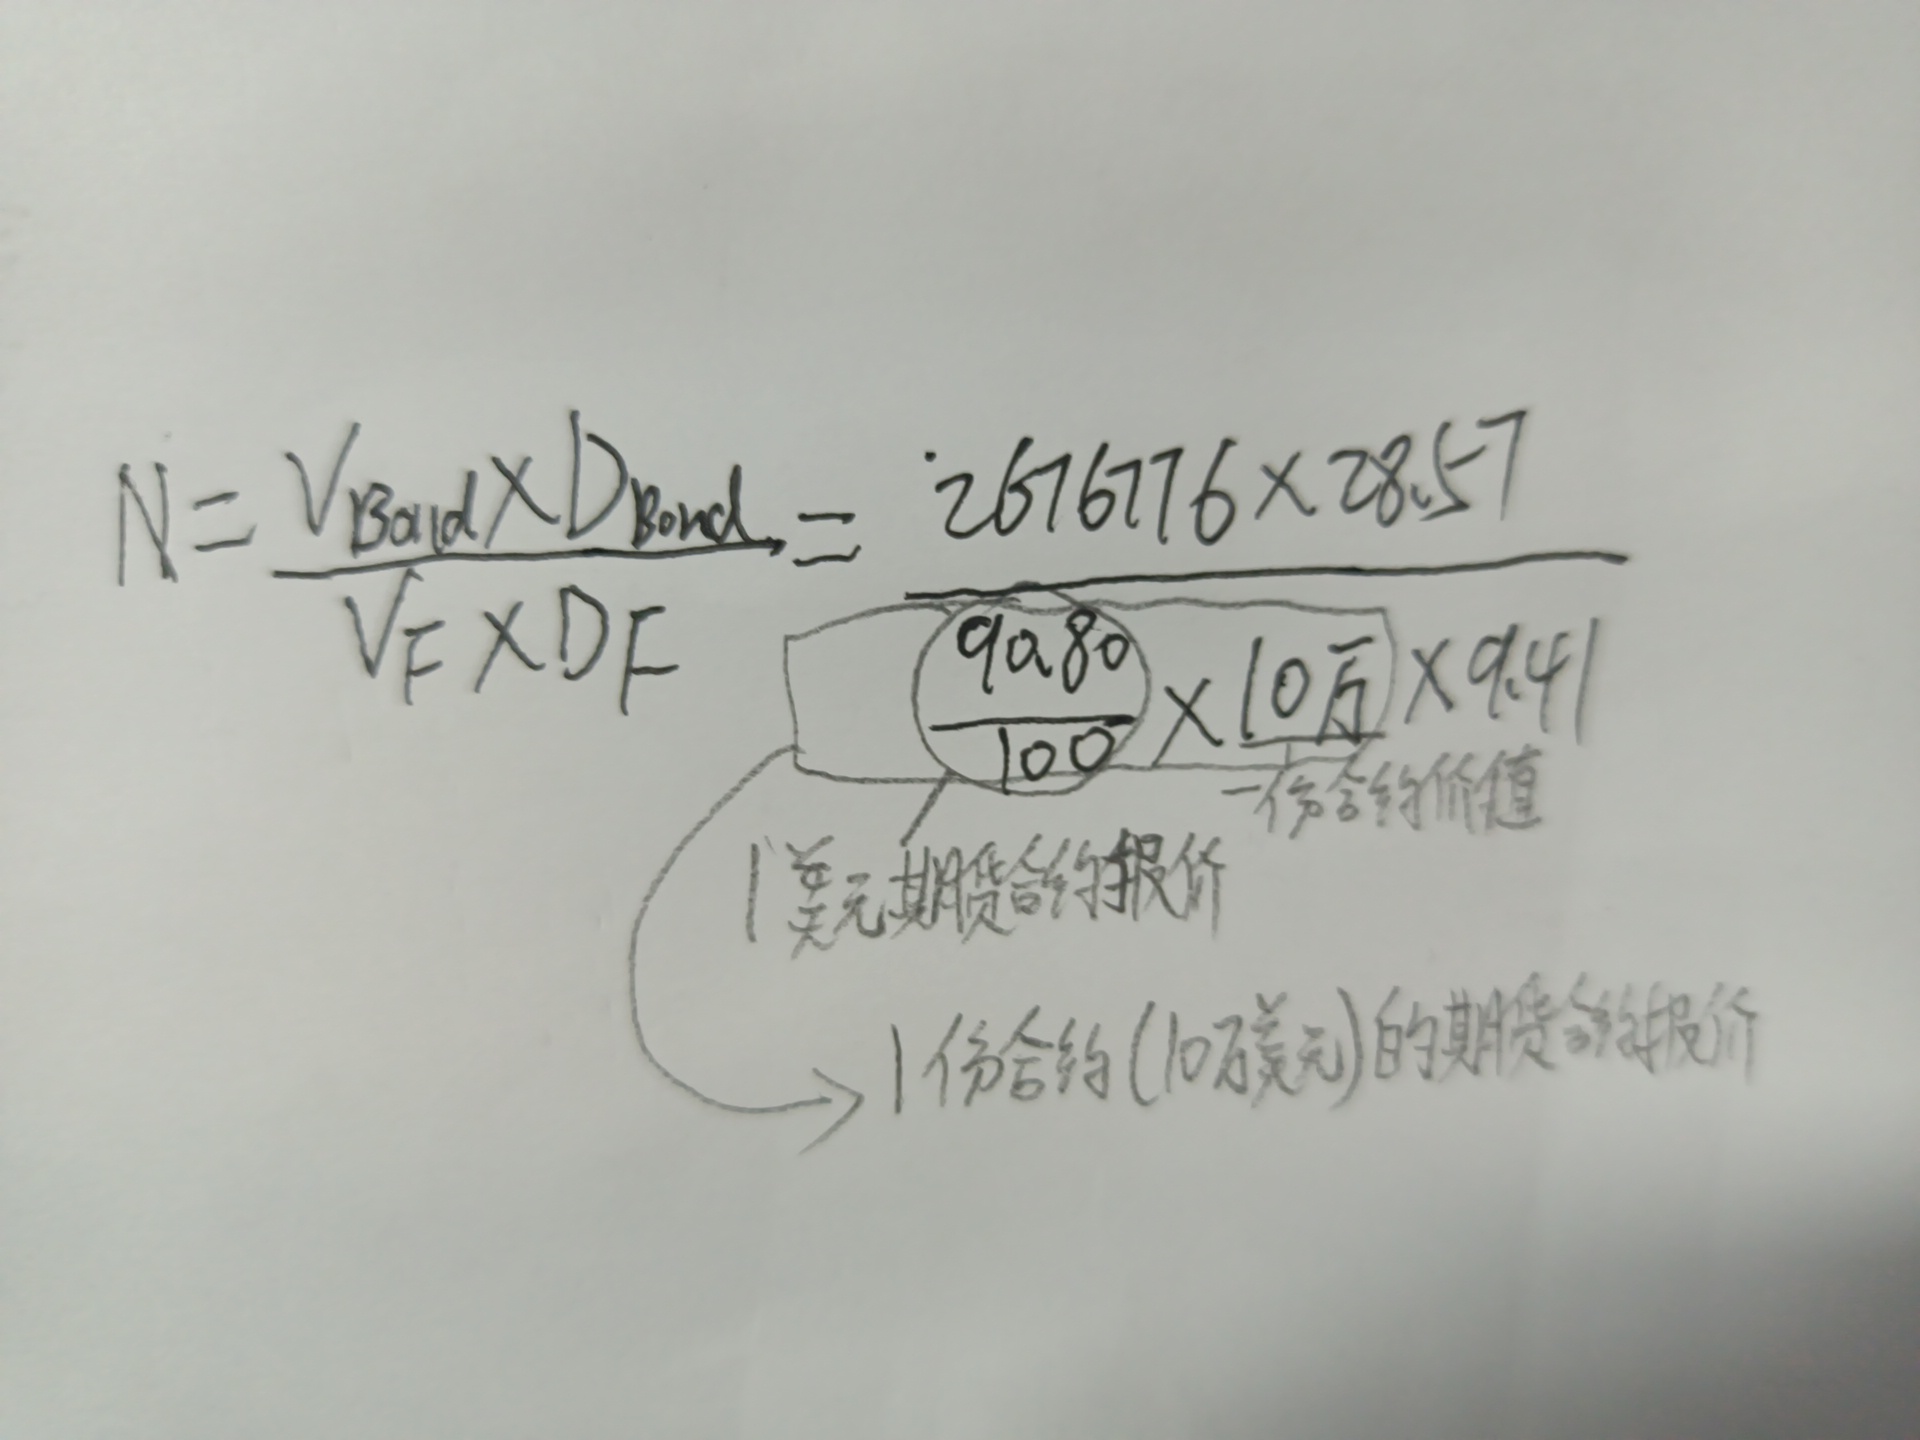 N = V_Bond × D_Bond / V_F × D_F = 2676776 × 28.57 / 90.80/100 × 10万 × 9.41
一份合约价值
1美元期货合约报价
1份合约(10万美元)的期货合约报价